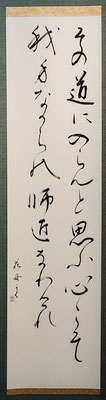 その道に入らんと思ふ心こそ
我身ながらの師匠なりけれ